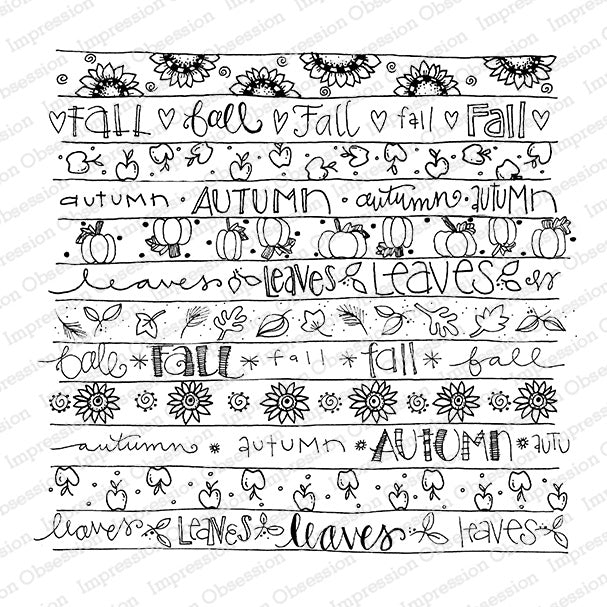 FALL fall Fall fall Fall
autumn · AUTUMn · autumn · autumn
leaves LEAVES LEAVES
fall * FALL * fall * fall * fall
autumn * autumn * AUTUMn * autu
leaves LEAVES leaves leaves
Impression Obsession